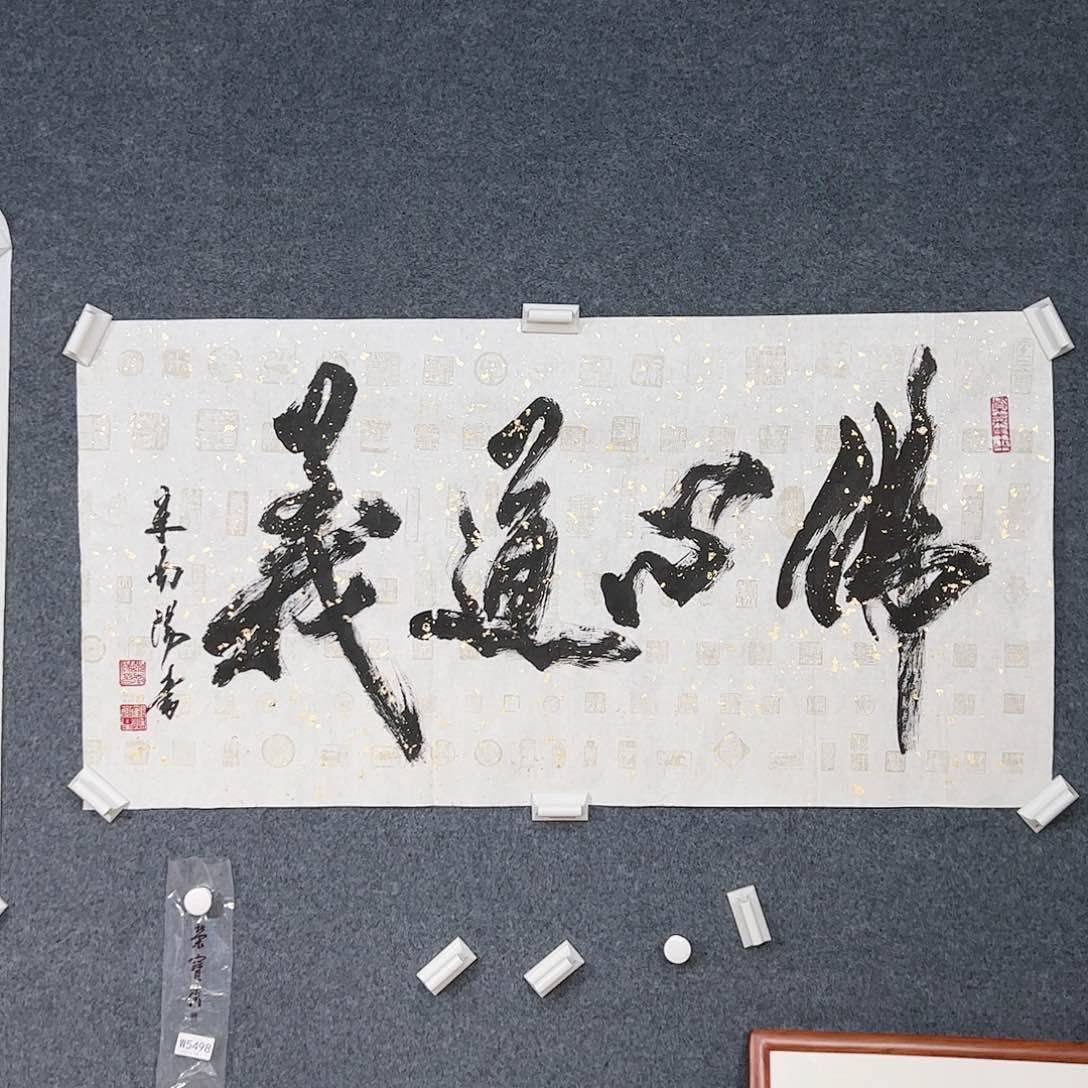 佛心道義
米南陽書
榮寶齋
W5498